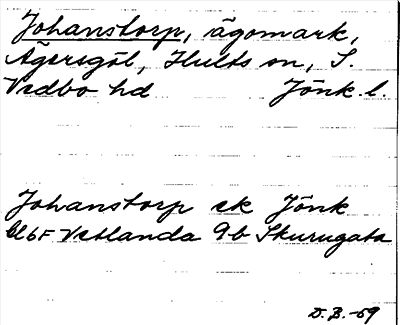 Johanstorp, ägomark,
Ägersgöl, Hults sn, S.
Vedbo hd Jönk. l.
Johanstorp ek Jönk
6F Vetlanda 9b Skurugata
D.B. -69